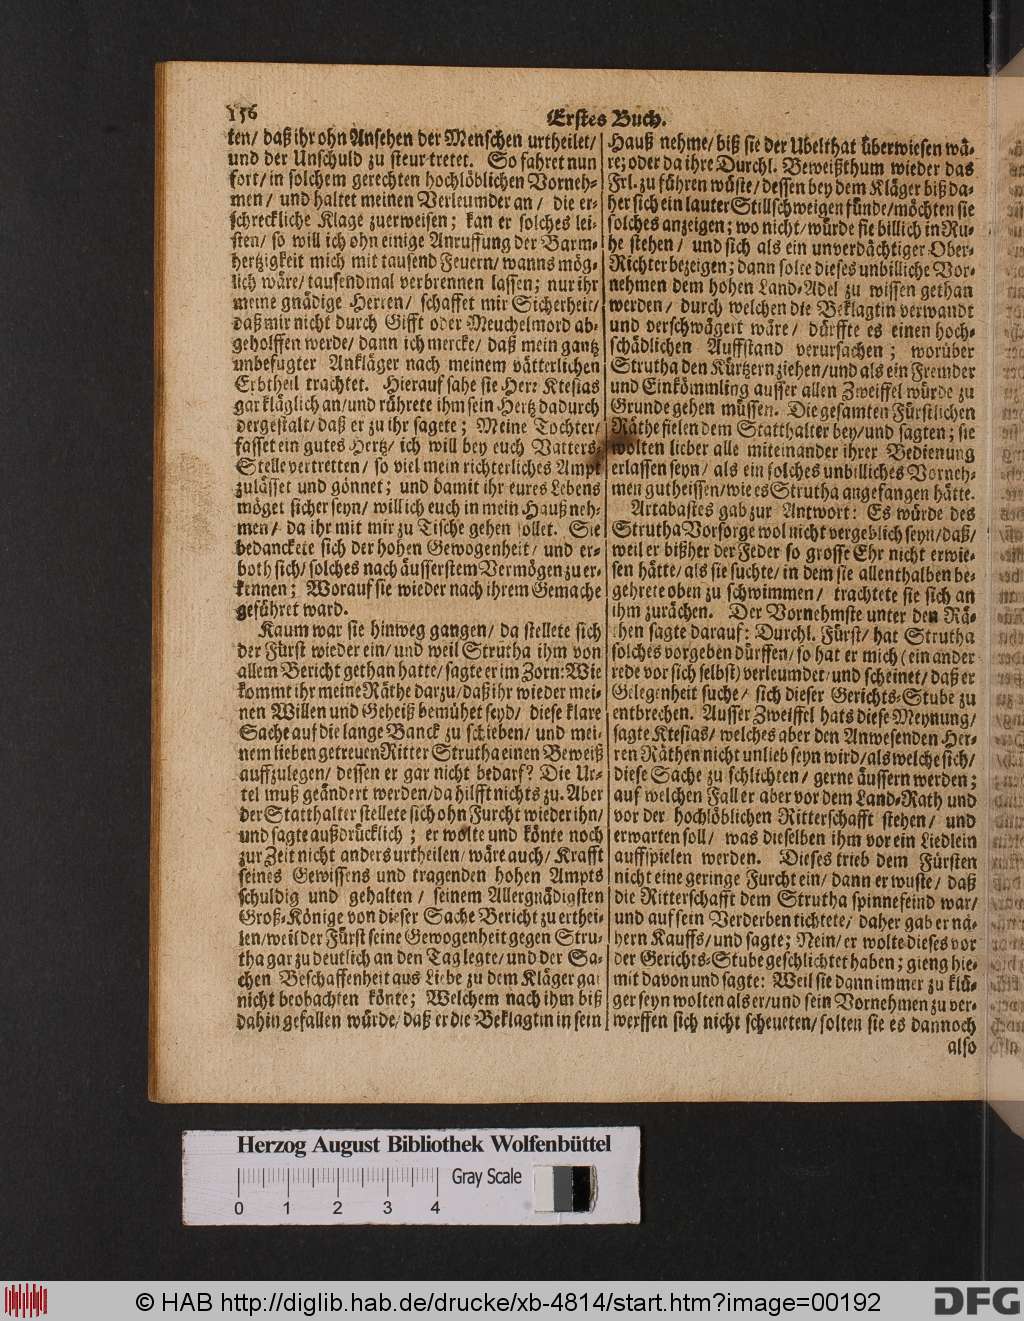 156
Erstes Buch.
ten/ daß ihr ohn Ansehen der Menschen urtheilet/
und der Unschuld zu steur tretet. So fahret nun
fort/ in solchem gerechten hochlöblichen Vorneh-
men/ und haltet meinen Verleumder an/ die er-
schreckliche Klage zuerweisen; kan er solches lei-
sten/ so will ich ohn einige Anruffung der Barm-
hertzigkeit mich mit tausend Feuern/ wanns mög-
lich wäre/ tausendmal verbrennen lassen; nur ihr
meine gnädige Herren/ schaffet mir Sicherheit/
daß mir nicht durch Gifft oder Meuchelmord ab-
geholffen werde/ dann ich mercke/ daß mein gantz
unbefugter Ankläger nach meinem vätterlichen
Erbtheil trachtet. Hierauf sahe sie Herr Ktesias
gar kläglich an/ und rührete ihm sein Hertz dadurch
dergestalt/ daß er zu ihr sagete; Meine Tochter/
fasset ein gutes Hertz/ ich will bey euch Vatters-
Stelle vertretten/ so viel mein richterliches Ampt
zulässet und gönnet; und damit ihr eures Lebens
möget sicher seyn/ will ich euch in mein Hauß neh-
men/ da ihr mit mir zu Tische gehen sollet. Sie
bedanckete sich der hohen Gewogenheit/ und er-
both sich/ solches nach äusserstem Vermögen zu er-
kennen; Worauf sie wieder nach ihrem Gemache
geführet ward.
Kaum war sie hinweg gangen/ da stellete sich
der Fürst wieder ein/ und weil Strutha ihm von
allem Bericht gethan hatte/ sagte er im Zorn: Wie
kommt ihr meine Räthe darzu/ daß ihr wieder mei-
nen Willen und Geheiß bemühet seyd/ diese klare
Sache auf die lange Banck zu schieben/ und mei-
nem lieben getreuen Ritter Strutha einen Beweiß
auffzulegen/ dessen er gar nicht bedarf? Die Ur-
tel muß geändert werden/ da hilfft nichts zu. Aber
der Statthalter stellete sich ohn Furcht wieder ihn/
und sagte außdrücklich; er wolte und könte noch
zur Zeit nicht anders urtheilen/ wäre auch/ Krafft
seines Gewissens und tragenden hohen Ampts
schuldig und gehalten/ seinem Allergnädigsten
Groß-Könige von dieser Sache Bericht zu erthei-
len/ weil der Fürst seine Gewogenheit gegen Stru-
tha gar zu deutlich an den Tag legte/ und der Sa-
chen Beschaffenheit aus Liebe zu dem Kläger gar
nicht beobachten könte; Welchem nach ihm biß
dahin gefallen würde/ daß er die Beklagtin in sein
Hauß nehme/ biß sie der Ubelthat überwiesen wä-
re; oder da ihre Durchl. Beweißthum wieder das
Frl. zu führen wüste/ dessen bey dem Kläger biß da-
her sich ein lauter Stillschweigen fünde/ möchten sie
solches anzeigen; wo nicht/ würde sie billich in Ru-
he stehen/ und sich als ein unverdächtiger Ober-
Richter bezeigen; dann solte dieses unbilliche Vor-
nehmen dem hohen Land-Adel zu wissen gethan
werden/ durch welchen die Beklagtin verwandt
und verschwägert wäre/ dürffte es einen hoch-
schädlichen Auffstand verursachen; worüber
Strutha den Kürtzern ziehen/ und als ein Fremder
und Einkömmling ausser allen Zweiffel würde zu
Grunde gehen müssen. Die gesamten Fürstlichen
Räthe fielen dem Statthalter bey/ und sagten; sie
wolten lieber alle miteinander ihrer Bedienung
erlassen seyn/ als ein solches unbilliches Vorneh-
men gutheissen/ wie es Strutha angefangen hätte.
Artabastes gab zur Antwort: Es würde des
Strutha Vorsorge wol nicht vergeblich seyn/ daß/
weil er bißher der Feder so grosse Ehr nicht erwie-
sen hätte/ als sie suchte/ in dem sie allenthalben be-
gehrete oben zu schwimmen/ trachtete sie sich an
ihm zurächen. Der Vornehmste unter den Rä-
then sagte darauf: Durchl. Fürst/ hat Strutha
solches vorgeben dürffen/ so hat er mich (ein ander
rede vor sich selbst) verleumdet/ und scheinet/ daß er
Gelegenheit suche/ sich dieser Gerichts-Stube zu
entbrechen. Ausser Zweiffel hats diese Meynung/
sagte Ktesias/ welches aber den Anwesenden Her-
ren Räthen nicht unlieb seyn wird/ als welche sich/
diese Sache zu schlichten/ gerne äussern werden;
auf welchen Fall er aber vor dem Land-Rath und
vor der hochlöblichen Ritterschafft stehen/ und
erwarten soll/ was dieselben ihm vor ein Liedlein
auffspielen werden. Dieses trieb dem Fürsten
nicht eine geringe Furcht ein/ dann er wuste/ daß
die Ritterschafft dem Strutha spinnefeind war/
und auf sein Verderben tichtete/ daher gab er nä-
hern Kauffs/ und sagte; Nein/ er wolte dieses vor
der Gerichts-Stube geschlichtet haben; gieng hie-
mit davon und sagte: Weil sie dann immer zu klä-
ger seyn wolten als er/ und sein Vornehmen zu ver-
werffen sich nicht scheueten/ solten sie es dannoch
also
Herzog August Bibliothek Wolfenbüttel
Gray Scale
0 1 2 3 4
© HAB http://diglib.hab.de/drucke/xb-4814/start.htm?image=00192
DFG